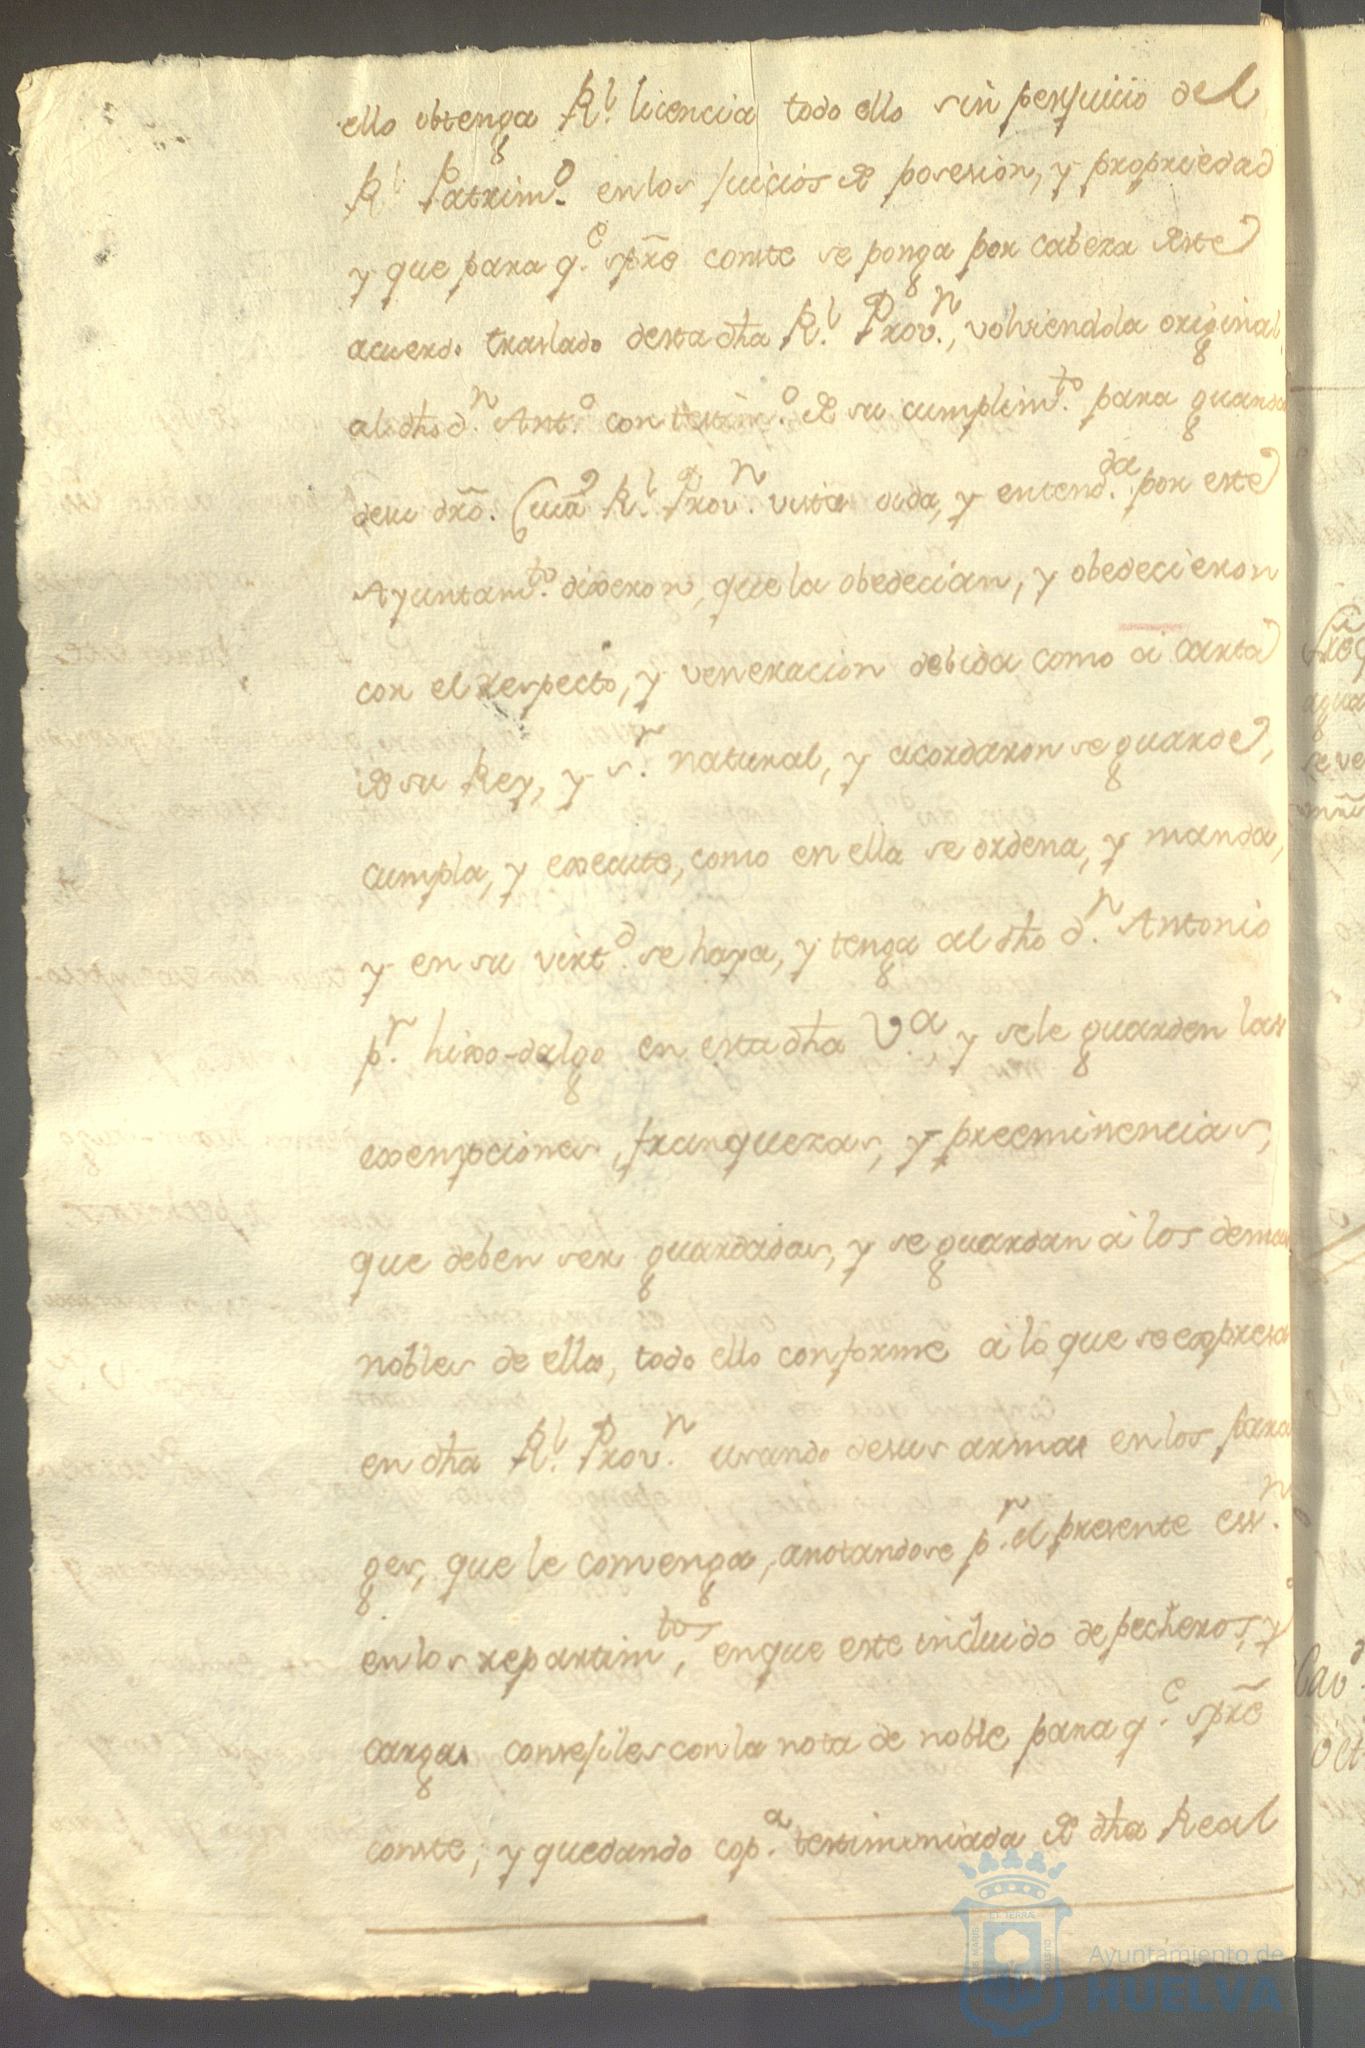 ello obtenga R.l licencia todo ello sin perjuicio del
R.l Patrim.o en los juicios de posesion, y propriedad
y que para q.e spre conste se ponga por cabeza deste
acuerdo traslado desta dha R.l Prov.n, volviendola original
al dho d.n Ant.o con testim.o de su cumplim.to para guarda
desu dro. Cuia R.l Prov.n vista oida, y entend.da por este
Ayuntam.to dixeron, que la obedecian, y obedecieron
con el respecto, y veneracion debida como a carta
de su Rey, y s.r natural, y acordaron se guarde,
cumpla, y execute, como en ella se ordena, y manda,
y en su virt.d se haya, y tenga al dho d.n Antonio
p.r hixo-dalgo en esta dha V.a y sele guarden las
exempciones, franquezas, y preeminencias,
que deben ser guardadas, y se guardan à los demas
nobles de ella, todo ello conforme à lo que se expresa
en dha R.l Prov.n usando desus armas en los para
ges, que le convenga, anotandose p.r el presente ess.n
en los repartim.tos, enque este incluido de pecheros, y
cargas consejiles con la nota de noble para q.e spre
conste, y quedando cop.a testimoniada de dha Real
Ayuntamiento de
HUELVA